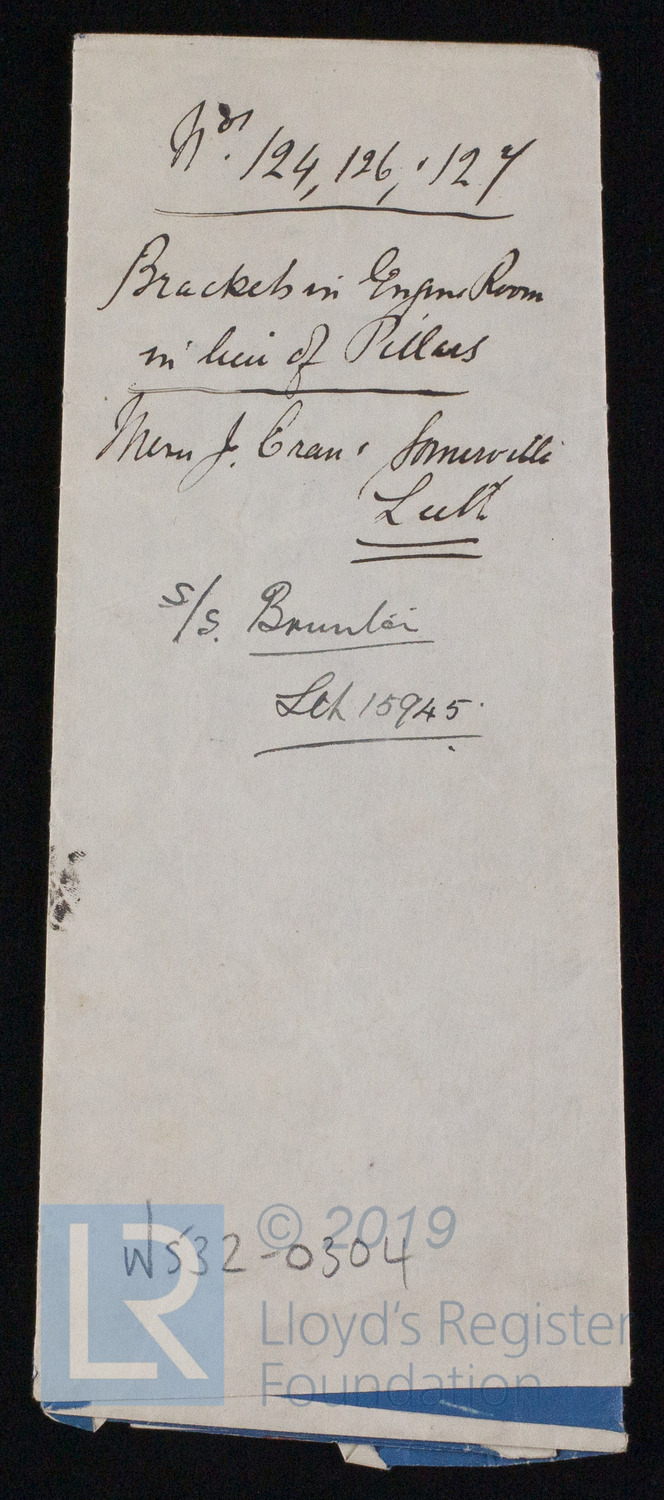 Nos. 124, 126, & 127
Brackets in Engine Room
in lieu of Pillars
Messrs J. Cran & Somerville
Leith
S/S.
Lth 15945.
W532-0304
© 2019
LR
Lloyd's Register
Foundation